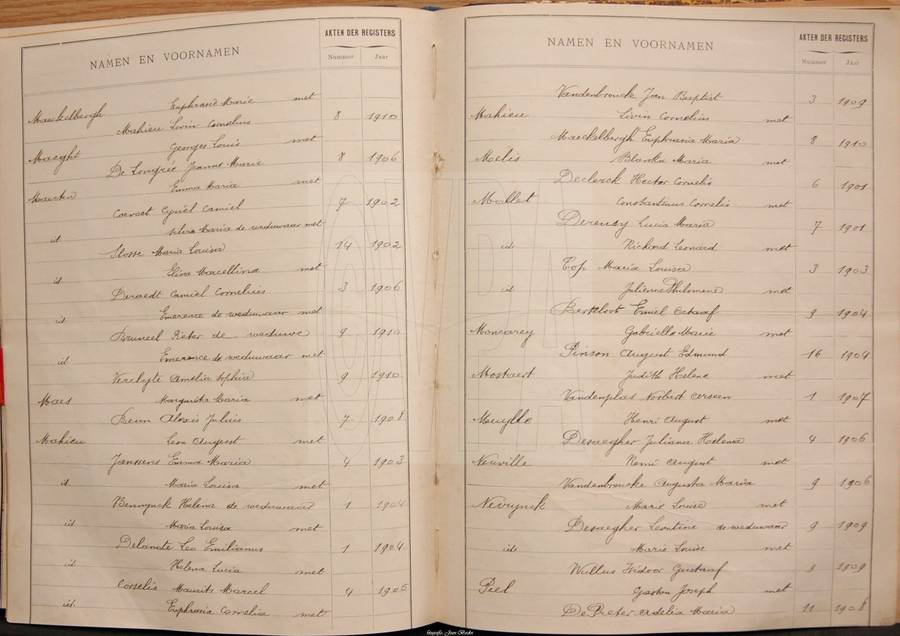 AKTEN DER REGISTERS
NAMEN EN VOORNAMEN
Nummer Jaar
Maekelbergh Euphrasie Marie met
Mahieu Livin Cornelius 8 1910
Maeght Georges Louis met
De Longrée Jeanne Marie 8 1906
Maerten Emma Maria met
Coevoet Cyriel Camiel 7 1902
id Maria de weduwaar met
Slosse Maria Louisa 14 1902
id Elisa Marcellina met
Deraedt Camiel Cornelius 3 1906
id Emerence de weduwaar met
Bruneel Pieter de weduwe 9 1910
id Emerence de weduwaar met
Verclyte Amelia Sophia 9 1910
Maes Margarita Maria met
Deun Alexis Julius 7 1908
Mahieu Leon August met
Janssens Emma Maria 4 1903
id Maria Louisa met
Bennynck Helena de weduwaar 1 1904
id Maria Louisa met
Delanote Leo Emilianus 1 1904
id Helena Lucia met
Cornelis Maurits Marcel 4 1905
id Euphrasia Cornelia met
AKTEN DER REGISTERS
NAMEN EN VOORNAMEN
Nummer Jaar
Vandenbroucke Jan Baptist 3 1909
Mahieu Livin Cornelius met
Maeckelbergh Euphrasia Maria 8 1910
Maelis Blanka Maria met
Declerck Hector Cornelis 6 1901
Mallet Constantinus Cornelis met
Lucia Maria 7 1901
id Richard Leonard met
Top Maria Louisa 3 1903
id Julienne Philomene met
Berteloot Emiel Octaaf 9 1904
Moncarey Gabrielle Marie met
Pinson August Edmund 16 1904
Mostaert Judith Helene met
Vandenplas Norbert Arseen 1 1907
Meuylle Henri August met
Desaegher Juliana Helena 4 1906
Neuville Remi August met
Vandenbroucke Augusta Maria 9 1906
Nevejnck Marie Louise met
Desaegher Leontine de weduwaar 9 1909
id Marie Louise met
Wullus Isidoor Gustaaf 9 1909
Piel Gaston Joseph met
De Pieter Adelia Maria 11 1908